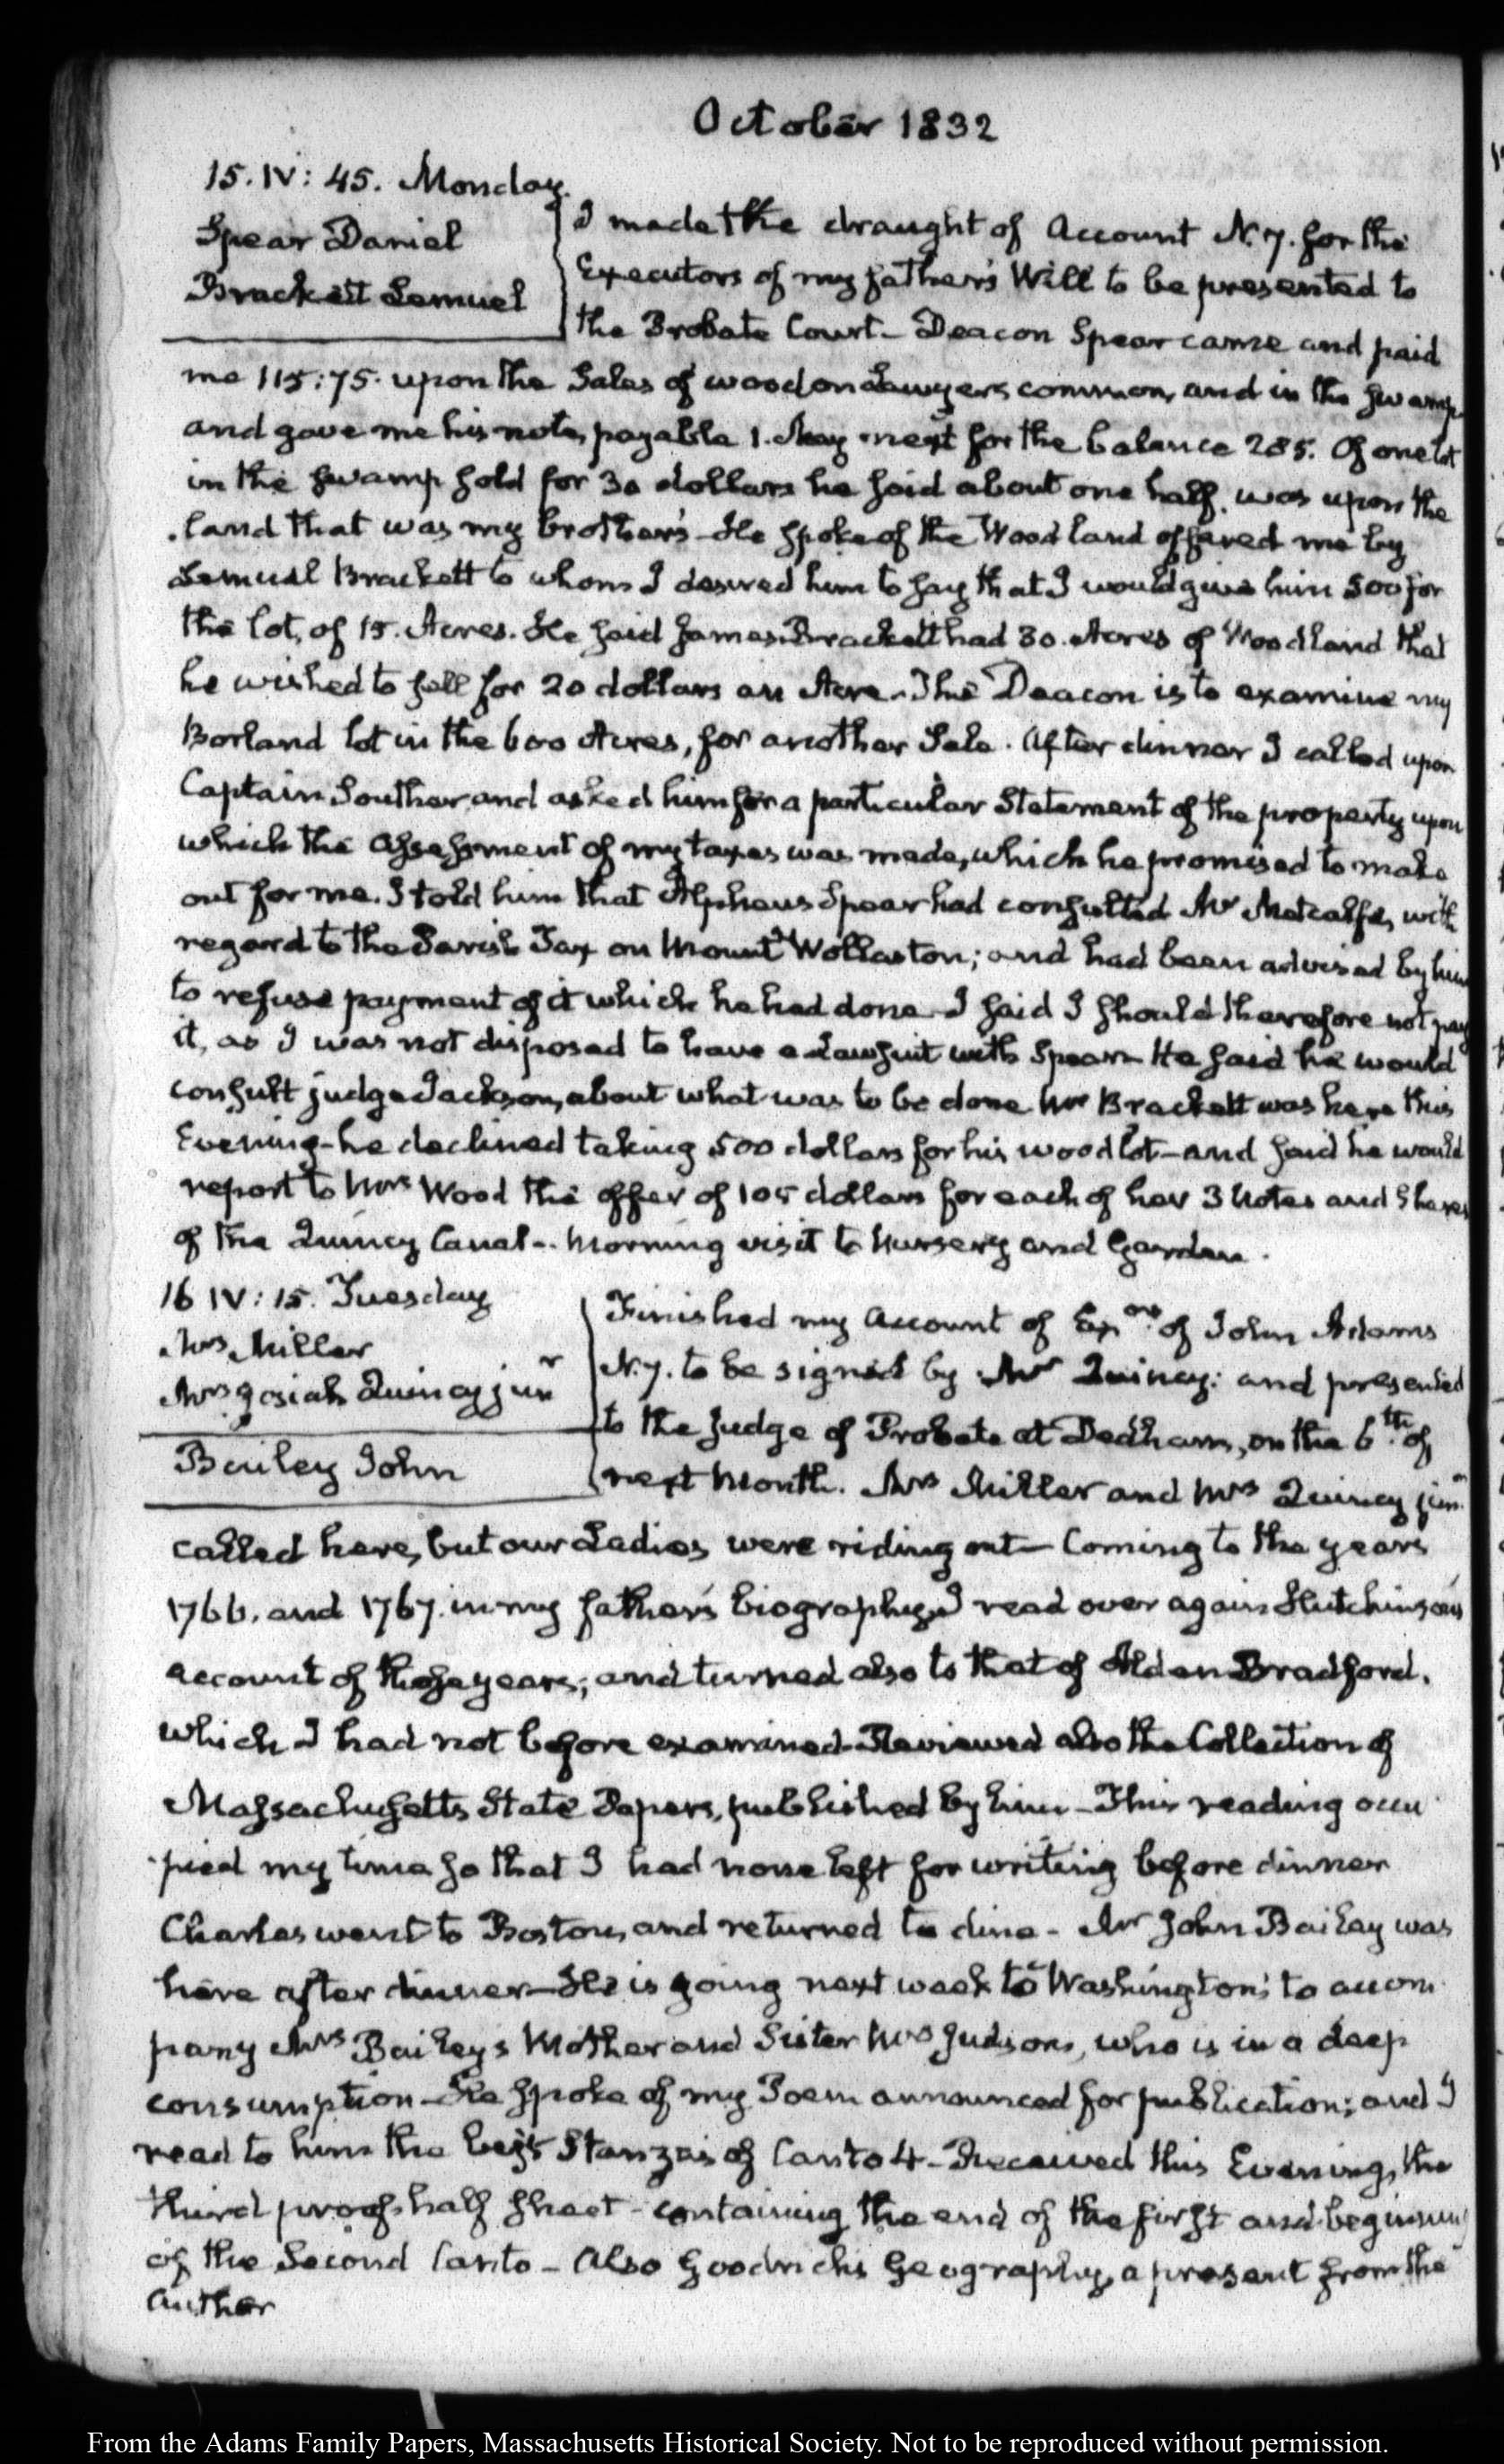 October 1832
15. IV: 45. Monday.
Spear Daniel
Brackett Lemuel
I made the draught of Account N. 7. for the
Executors of my father's Will to be presented to
the Probate Court— Deacon Spear came and paid
me 115:75. upon the Sales of wood on Sawyers common, and in the swamp
and gave me his note, payable 1. May next for the balance 285. Of one lot
in the swamp sold for 30 dollars he said about one half was upon the
land that was my brother's— He spoke of the Wood land offered me by
Lemuel Brackett to whom I desired him to say that I would give him 500 for
the lot, of 15. Acres. He said James Brackett had 30. Acres of Woodland that
he wished to sell for 20 dollars an Acre. The Deacon is to examine my
Borland lot in the 600 Acres, for another Sale. After dinner I called upon
Captain Souther and asked him for a particular Statement of the property upon
which the assessment of my taxes was made, which he promised to make
out for me. I told him that Alpheus Spear had consulted Mr Metcalfe, with
regard to the Parish Tax on Mount Wollaston; and had been advised by him
to refuse payment of it which he had done— I said I should therefore not pay
it, as I was not disposed to have a Lawsuit with Spear— He said he would
consult judge Jackson, about what was to be done. Mr Brackett was here this
Evening— he declined taking 500 dollars for his wood lot— and said he would
report to Mrs Wood the offer of 105 dollars for each of her 3 Notes and Shares
of the Quincy Canal— Morning visit to Nursery and Garden.
16 IV: 15. Tuesday
Mrs Miller
Mrs Josiah Quincy junr
Bailey John
Finished my Account of Exors of John Adams
N. 7. to be signed by Mr Quincy: and presented
to the Judge of Probate at Dedham, on the 6th of
next Month. Mrs Miller and Mrs Quincy junr
called here, but our Ladies were riding out— Coming to the years
1766. and 1767. in my father's biography, I read over again Hutchinson's
account of those years; and turned also to that of Alden Bradford,
which I had not before examined— Reviewed also the Collection of
Massachusetts State Papers, published by him— This reading occu
pied my time so that I had none left for writing before dinner
Charles went to Boston, and returned to dine— Mr John Bailey was
here after dinner— He is going next week to Washington; to accom
pany Mrs Bailey's Mother and Sister Mrs Judson, who is in a deep
consumption— He spoke of my Poem announced for publication; and I
read to him the last Stanzas of Canto 4— Received this Evening, the
third proof half sheet— containing the end of the first and beginning
of the Second Canto— Also Goodrich's Geography, a present from the
author
From the Adams Family Papers, Massachusetts Historical Society. Not to be reproduced without permission.